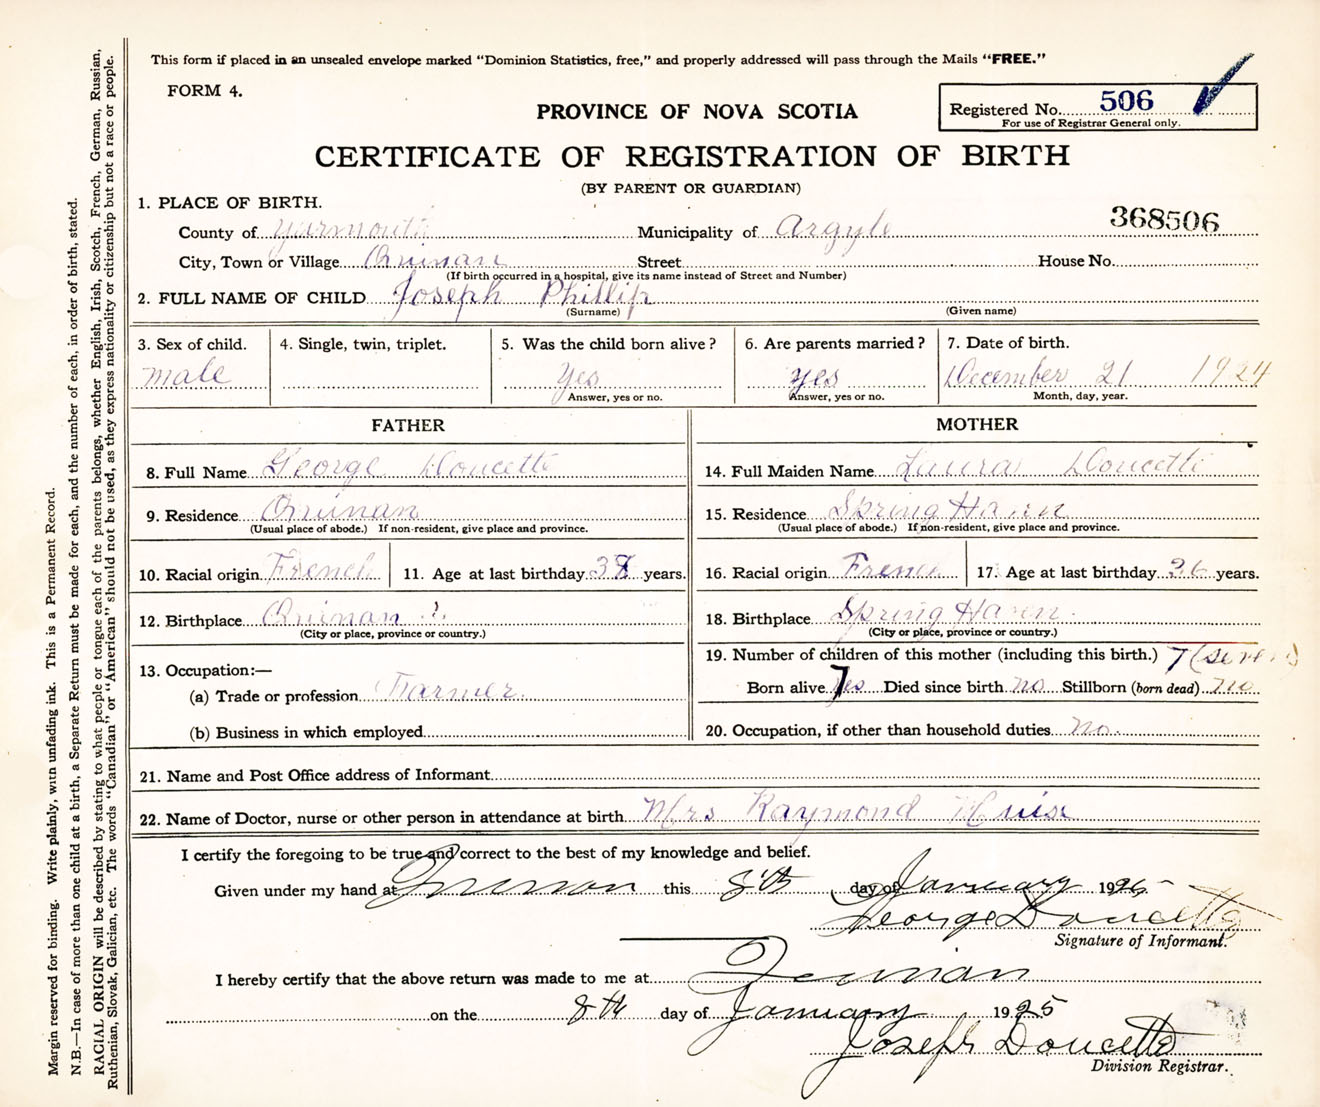 This form if placed in an unsealed envelope marked “Dominion Statistics, free,” and properly addressed will pass through the Mails “FREE.”
FORM 4.
PROVINCE OF NOVA SCOTIA
Registered No. 506
For use of Registrar General only.
CERTIFICATE OF REGISTRATION OF BIRTH
(BY PARENT OR GUARDIAN)
368506
1. PLACE OF BIRTH.
County of Yarmouth Municipality of Argyle
City, Town or Village Quinan Street House No.
(If birth occurred in a hospital, give its name instead of Street and Number)
2. FULL NAME OF CHILD Joseph Phillip
(Surname) (Given name)
3. Sex of child. 4. Single, twin, triplet. 5. Was the child born alive? 6. Are parents married? 7. Date of birth.
male Yes yes December 21 1924
Answer, yes or no. Answer, yes or no. Month, day, year.
FATHER
8. Full Name George Doucette
9. Residence Quinan
(Usual place of abode.) If non-resident, give place and province.
10. Racial origin French 11. Age at last birthday years.
12. Birthplace Quinan
(City or place, province or country.)
13. Occupation:—
(a) Trade or profession Farmer.
(b) Business in which employed
MOTHER
14. Full Maiden Name Laura Doucette
15. Residence Spring Haven
(Usual place of abode.) If non-resident, give place and province.
16. Racial origin French 17. Age at last birthday 36 years.
18. Birthplace Spring Haven.
(City or place, province or country.)
19. Number of children of this mother (including this birth.) 7 (seven)
Born alive 7 yes Died since birth no Stillborn (born dead) no
20. Occupation, if other than household duties no.
21. Name and Post Office address of Informant
22. Name of Doctor, nurse or other person in attendance at birth Mrs Raymond Muise
I certify the foregoing to be true and correct to the best of my knowledge and belief.
Given under my hand at Quinan this 8th day of January 1925
George Doucette
Signature of Informant.
I hereby certify that the above return was made to me at Quinan
on the 8th day of January 1925
Joseph Doucette
Division Registrar.
Margin reserved for binding. Write plainly, with unfading ink. This is a Permanent Record.
N.B.—In case of more than one child at a birth, a Separate Return must be made for each, and the number of each, in order of birth, stated.
RACIAL ORIGIN will be described by stating to what people or tongue each of the parents belongs, whether English, Irish, Scotch, French, German, Russian,
Ruthenian, Slovak, Galician, etc. The words “Canadian” or “American” should not be used, as they express nationality or citizenship but not a race or people.